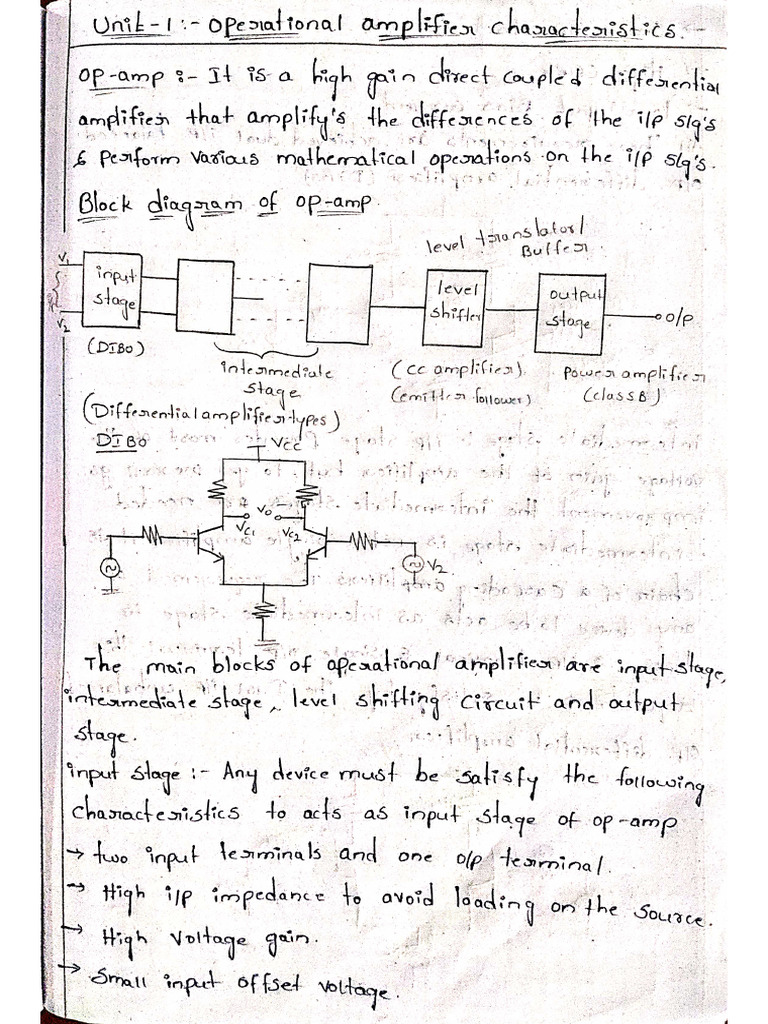 Unit-1 :- Operational amplifier characteristics.-
Op-amp :- It is a high gain direct coupled differential
amplifier that amplify's the differences of the i/p slq's
& perform various mathematical operations on the i/p slq's.
Block diagram of op-amp
level translator/
Buffer
V1
input
stage
V2
level
shifter
output
stage
o/p
(DIBO)
intermediate
stage
(CC amplifier)
(emitter follower)
Power amplifier
(class B)
(Differential amplifier types)
DIBO
VCC
Vo
VC1
VC2
V2
The main blocks of operational amplifier are input stage,
intermediate stage, level shifting circuit and output
stage.
input stage :- Any device must be satisfy the following
characteristics to acts as input stage of op-amp
→ two input terminals and one o/p terminal.
→ High i/p impedance to avoid loading on the source.
→ High voltage gain.
→ Small input offset voltage.